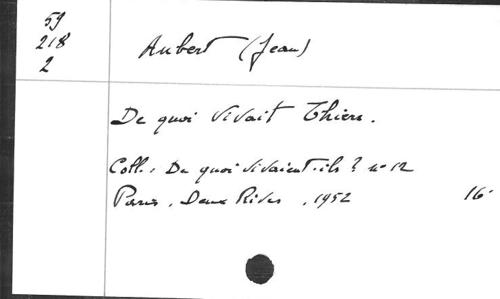 59
218
2
Aubert (Jean)
De quoi vivait Thiers.
Coll. : De quoi vivaient-ils ? n° 12
Paris, Deux Rives, 1952 16°